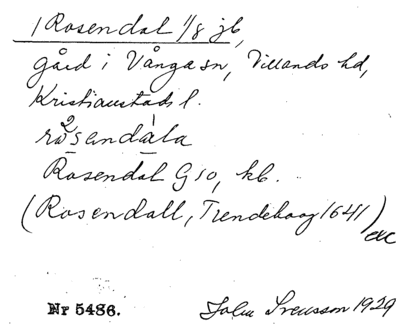 1 Rosendal 1/8 jb,
gård i Vånga sn, Villands hd,
Kristianstads l.
Rosendal G10, kb.
(Rosendall, Trendehoog 1641)
Nr 5486. John Svensson 1929